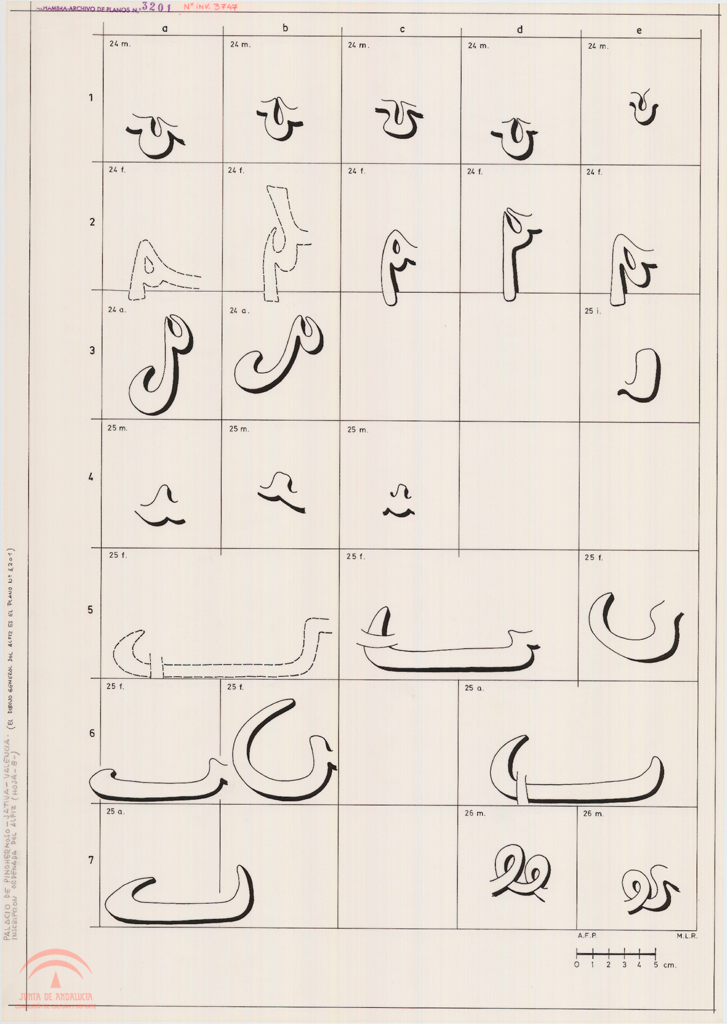 ALHAMBRA-ARCHIVO DE PLANOS N.º 3201 Nº INV. 3747
a b c d e
1 24 m. 24 m. 24 m. 24 m. 24 m.
2 24 f. 24 f. 24 f. 24 f. 24 f.
3 24 a. 24 a. 25 i.
4 25 m. 25 m. 25 m.
5 25 f. 25 f. 25 f.
6 25 f. 25 f. 25 a.
7 25 a. 26 m. 26 m.
A.F.P. M.L.R.
0 1 2 3 4 5 cm.
PALACIO DE PINOHERMOSO - JATIVA - VALENCIA - (EL DIBUJO GENERAL DEL ALFIZ ES EL PLANO Nº 6201)
INSCRIPCION ORDENADA DEL ALFIZ (HOJA - 8 -)
JUNTA DE ANDALUCIA